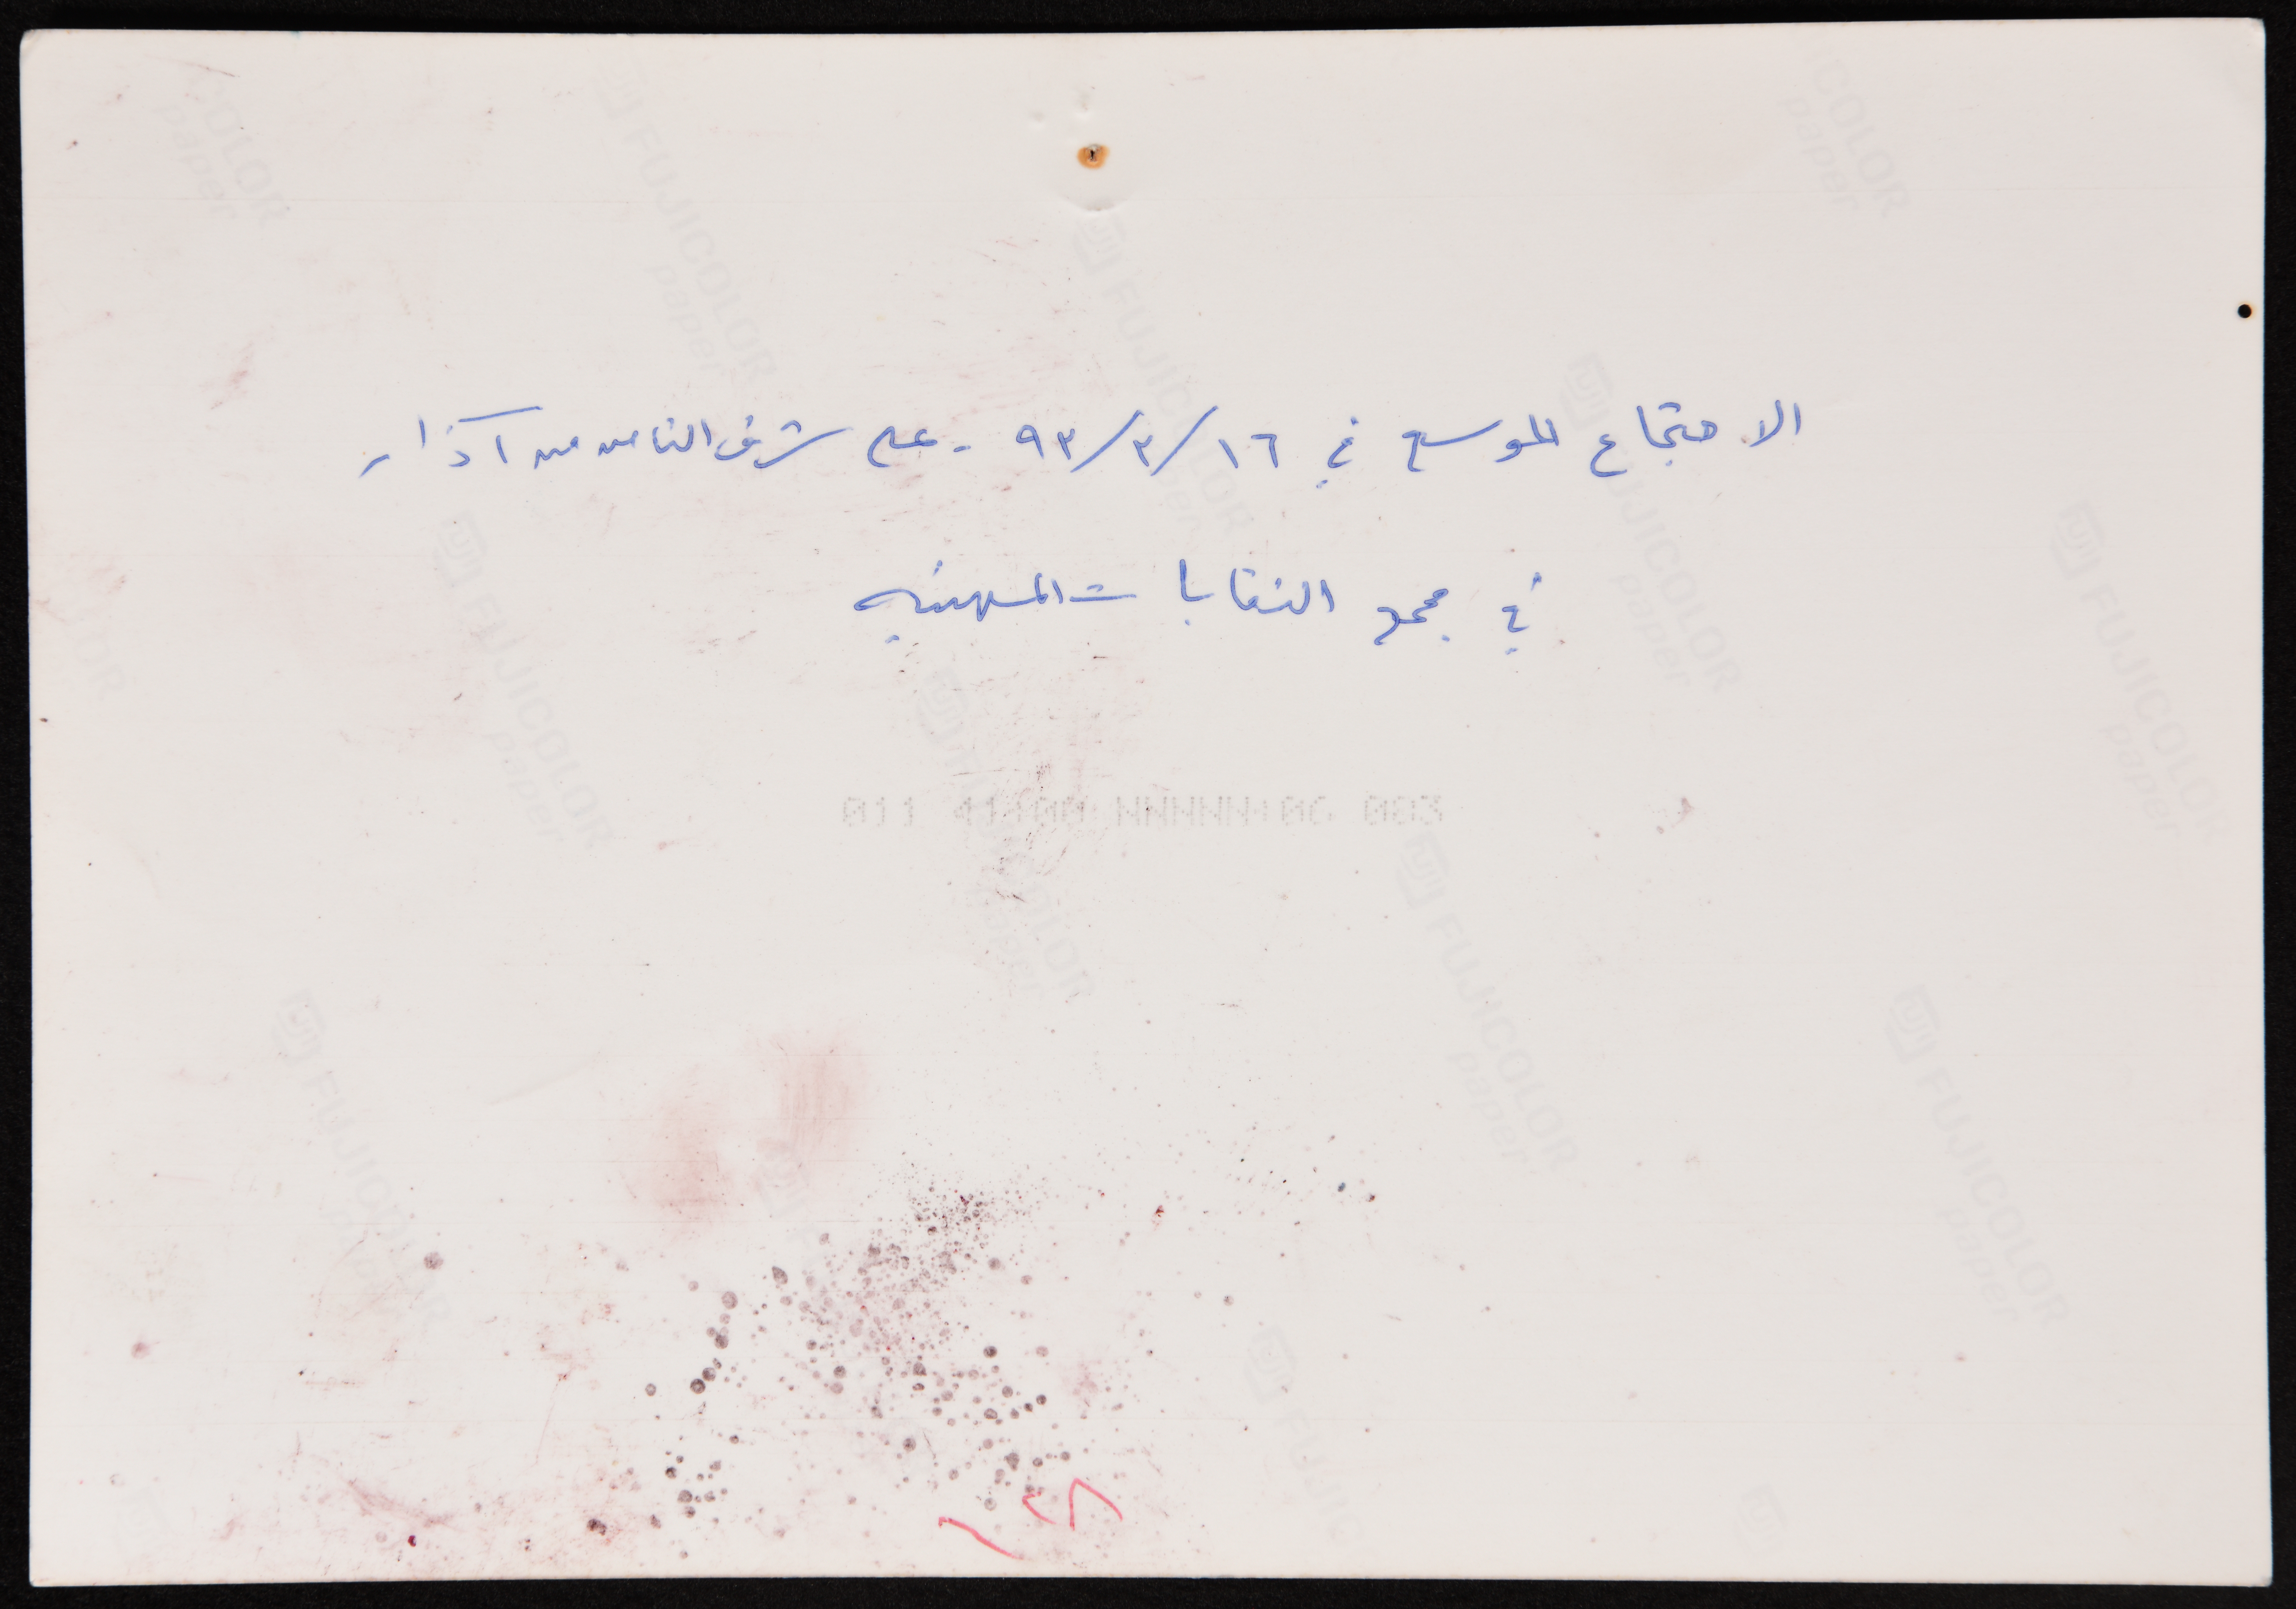 الاجتماع الموسع في ١٦/٣/٩٣ - على شرف الثامن من آذار
في مجمع النقابات المهنيه
011 41+00 NNNNN+06 003
FUJICOLOR paper